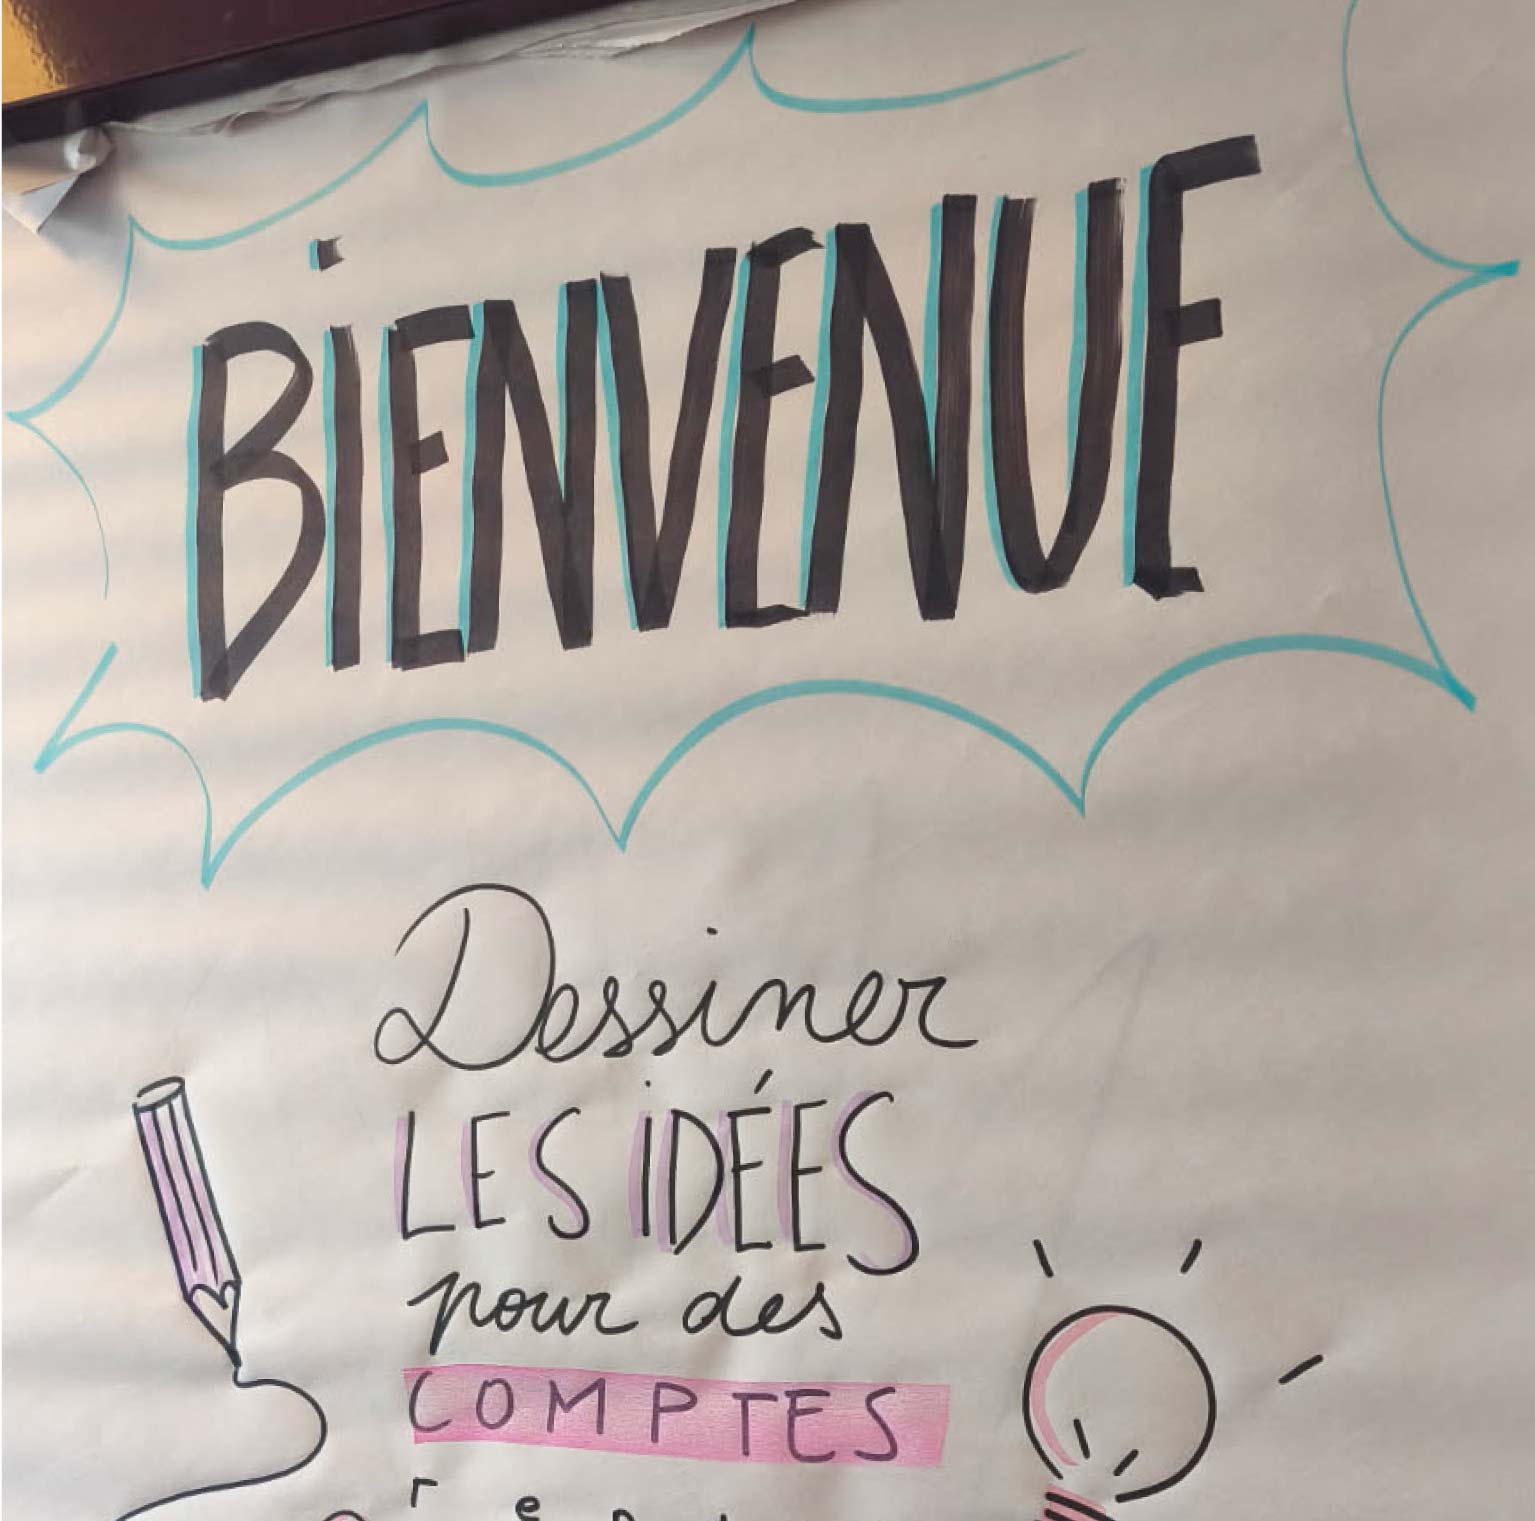 BiENVENUE
Dessiner
LES iDÉES
pour des
COMPTES